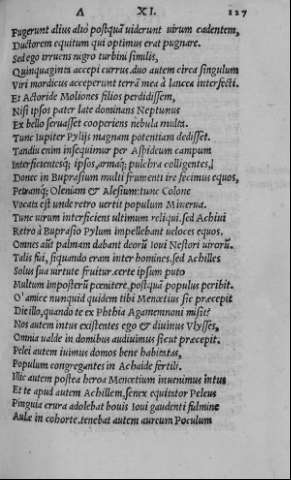 Λ XI. 127
Fugerunt alius alio postquā uiderunt uirum cadentem,
Ductorem equitum qui optimus erat pugnare.
Sed ego irruens nigro turbini similis,
Quinquaginta accepi currus. duo autem circa singulum
Viri mordicus acceperunt terrā mea à lancea interfecti.
Et Actoride Moliones filios perdidissem,
Nisi ipsos pater late dominans Neptunus
Ex bello seruasset cooperiens nebula multa.
Tunc Iupiter Pylijs magnam potentiam dedisset.
Tandiu enim insequimur per Aspideum campum
Interficientesq; ipsos, armaq; pulchra colligentes,
Donec in Buprasium multi frumenti ire fecimus equos,
Petramq; Oleniam & Alesium: tunc Colone
Vocata est unde retro uertit populum Minerua.
Tunc uirum interficiens ultimum reliqui. sed Achiui
Retro à Buprasio Pylum impellebant ueloces equos.
Omnes aūt palmam dabant deorū Ioui Nestori uirorū.
Talis fui, siquando eram inter homines. sed Achilles
Solus sua uirtute fruitur. certe ipsum puto
Multum imposterū pœnitere, postquā populus peribit.
O' amice nunquid quidem tibi Menœtius sic præcepit
Die illo, quando te ex Phthia Agamemnoni misit?
Nos autem intus existentes ego & diuinus Vlysses,
Omnia ualde in domibus audiuimus sicut præcepit.
Pelei autem iuimus domos bene habitatas,
Populum congregantes in Achaide fertili.
Illic autem postea heroa Menœtium inuenimus intus
Et te apud autem Achillem. senex equitator Peleus
Pinguia crura adolebat bouis Ioui gaudenti fulmine
Aulæ in cohorte. tenebat autem aureum Poculum